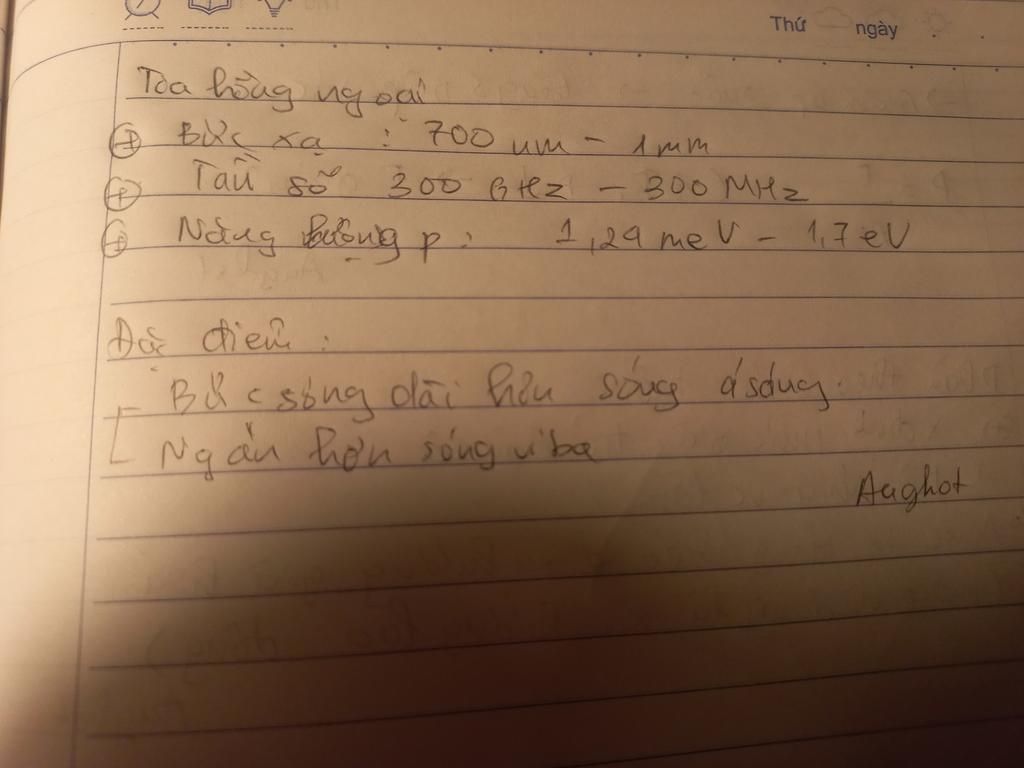 Thứ ngày
Tòa hồng ngoại
Bức xạ : 700 nm - 1mm
Tần số 300 GHz - 300 MHz
Năng lượng p : 1,24 meV - 1,7 eV
Đặc điểm :
- Bức sóng dài hơn sóng ásáng.
Ngắn hơn sóng viba